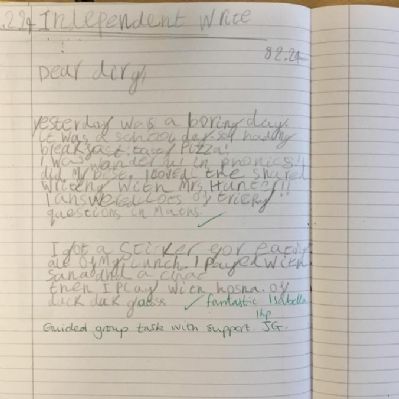 .2.24 Independent Write
8.2.24
Dear
yesterday was a boring day.
it was a school day so
breakfast Pizza!
I was in phonics. I
did my best. I loved the shared
writeng with Mrs Hunter!!
I answered lots of tricky
questions in Maths.
I got a sticker for
all of my lunch. I played with
and a
then I play with of
duck duck goose fantastic Isabella
1hp
Guided group task with support JG.